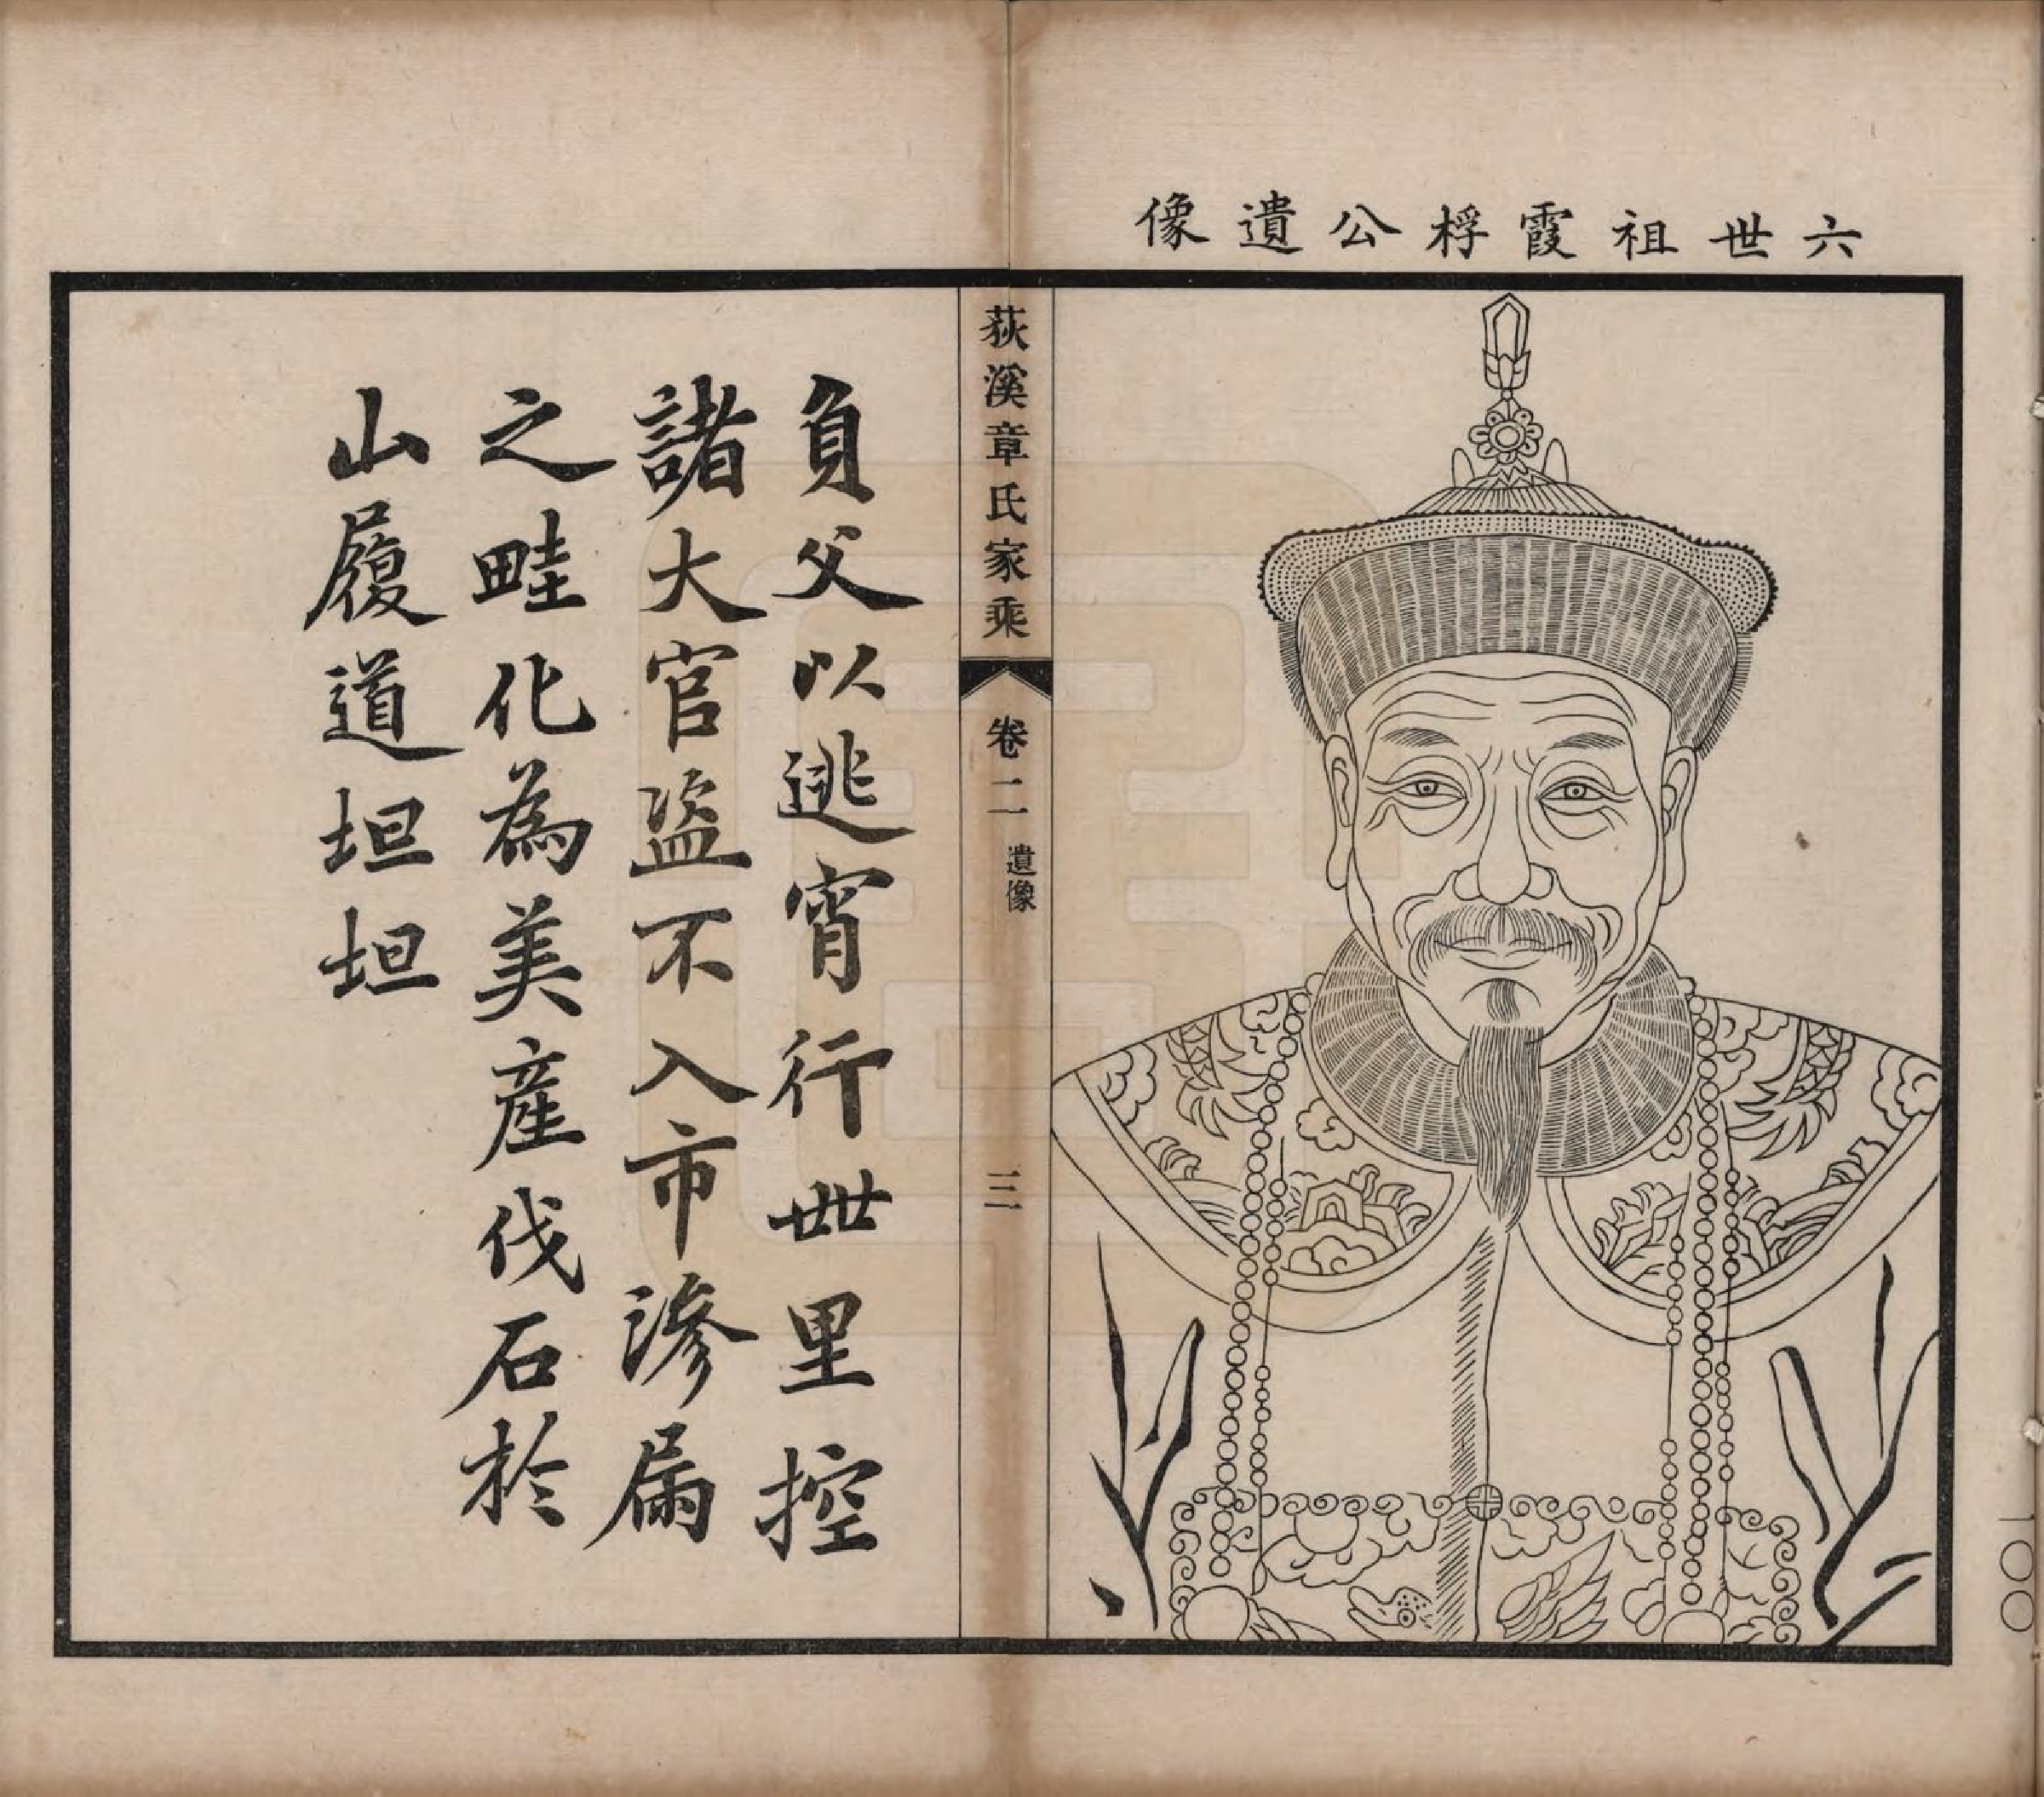 六世祖霞桴公遺像
荻溪章氏家乘
卷二
遺像
三
負父以逃宵行丗里控
諸大官盜不入市滲漏
之畦化為美產伐石於
山履道坦坦
100